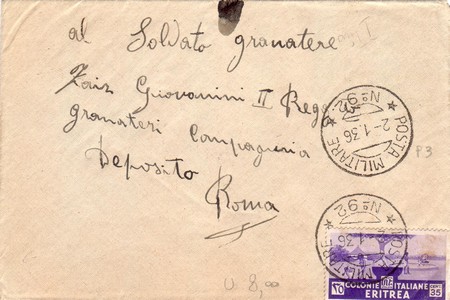 al Soldato granatere
Zaiz Giovannini II Regg
granateri Compagnia
Deposito
Roma
POSTA MILITARE
Nº 92
2-1.36
P3
POSTA MILITARE
Nº 92
1.36
COLONIE ITALIANE
ERITREA
35
U 8,00